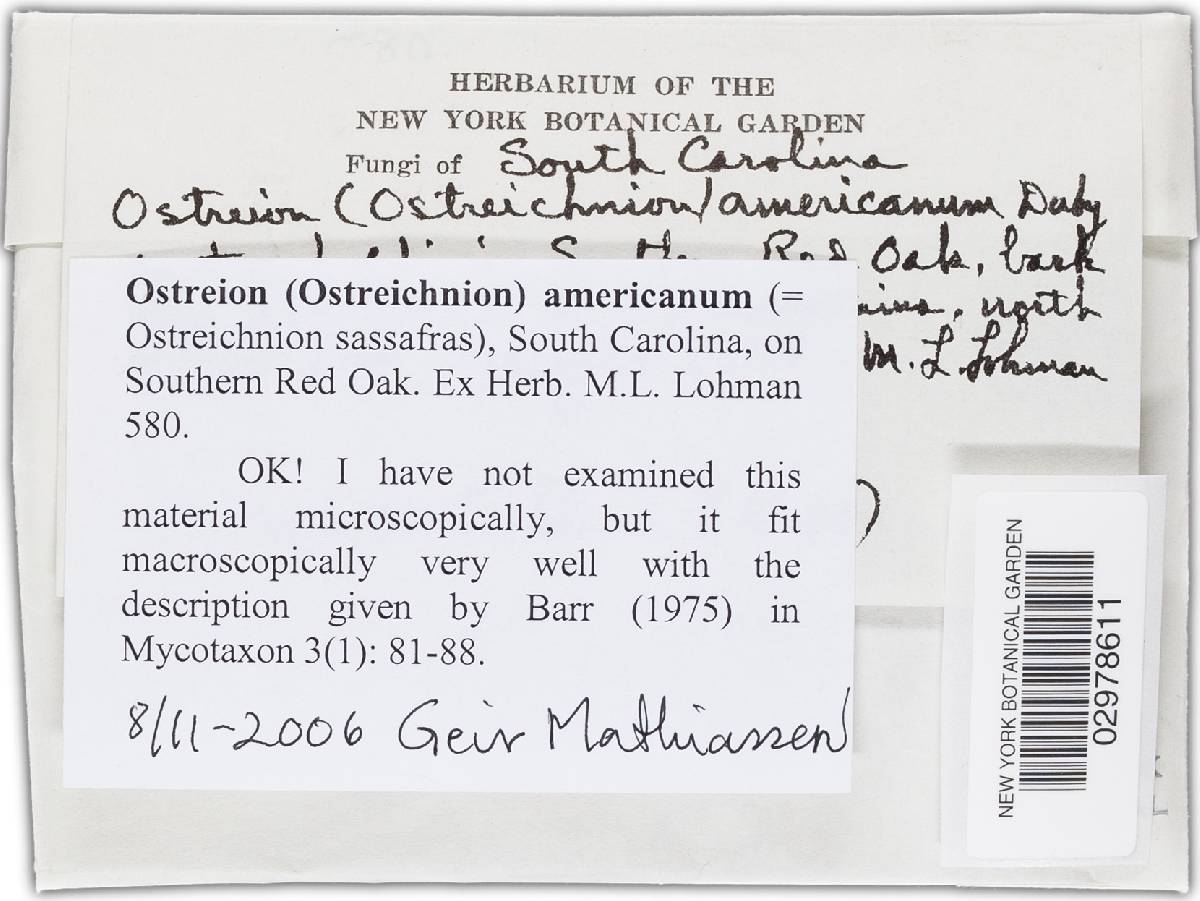 HERBARIUM OF THE
NEW YORK BOTANICAL GARDEN
Fungi of South Carolina
Ostreion (Ostreichnion) americanum Duby
Red Oak, bark
north
M. L. Lohman
Ostreion (Ostreichnion) americanum (=
Ostreichnion sassafras), South Carolina, on
Southern Red Oak. Ex Herb. M.L. Lohman
580.
OK! I have not examined this
material microscopically, but it fit
macroscopically very well with the
description given by Barr (1975) in
Mycotaxon 3(1): 81-88.
8/11-2006 Geir Mathiassen
NEW YORK BOTANICAL GARDEN
02978611